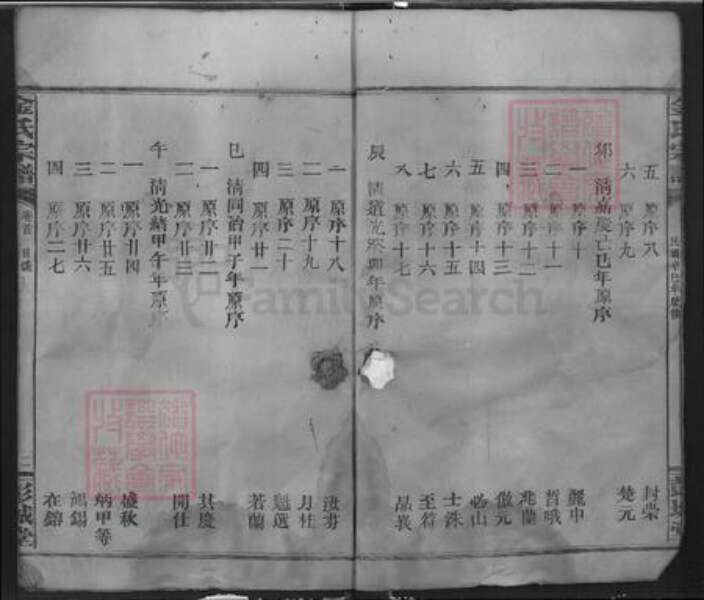 五 原序八 封榮
六 原序九 楚元
卯 清嘉慶己巳年原序
一 原序十 麗中
二 原序十一 哲哦
三 原序十二 兆蘭
四 原序十三 傲元
五 原序十四 必山
六 原序十五 士洙
七 原序十六 至符
八 原序十七 品襄
辰 清道光癸卯年原序
一 原序十八
二 原序十九 月桂
三 原序二十 魁選
四 原序廿一 若蘭
巳 清同治甲子年原序
一 原序廿二 其慶
二 原序廿三 開仕
午 清光緒甲午年原序
一 原序廿四 盛秋
二 原序廿五 炳甲等
三 原序廿六 鴻錫
四 原序二七 在鎔
金氏宗譜
卷首 目錄
彭城堂
FamilySearch